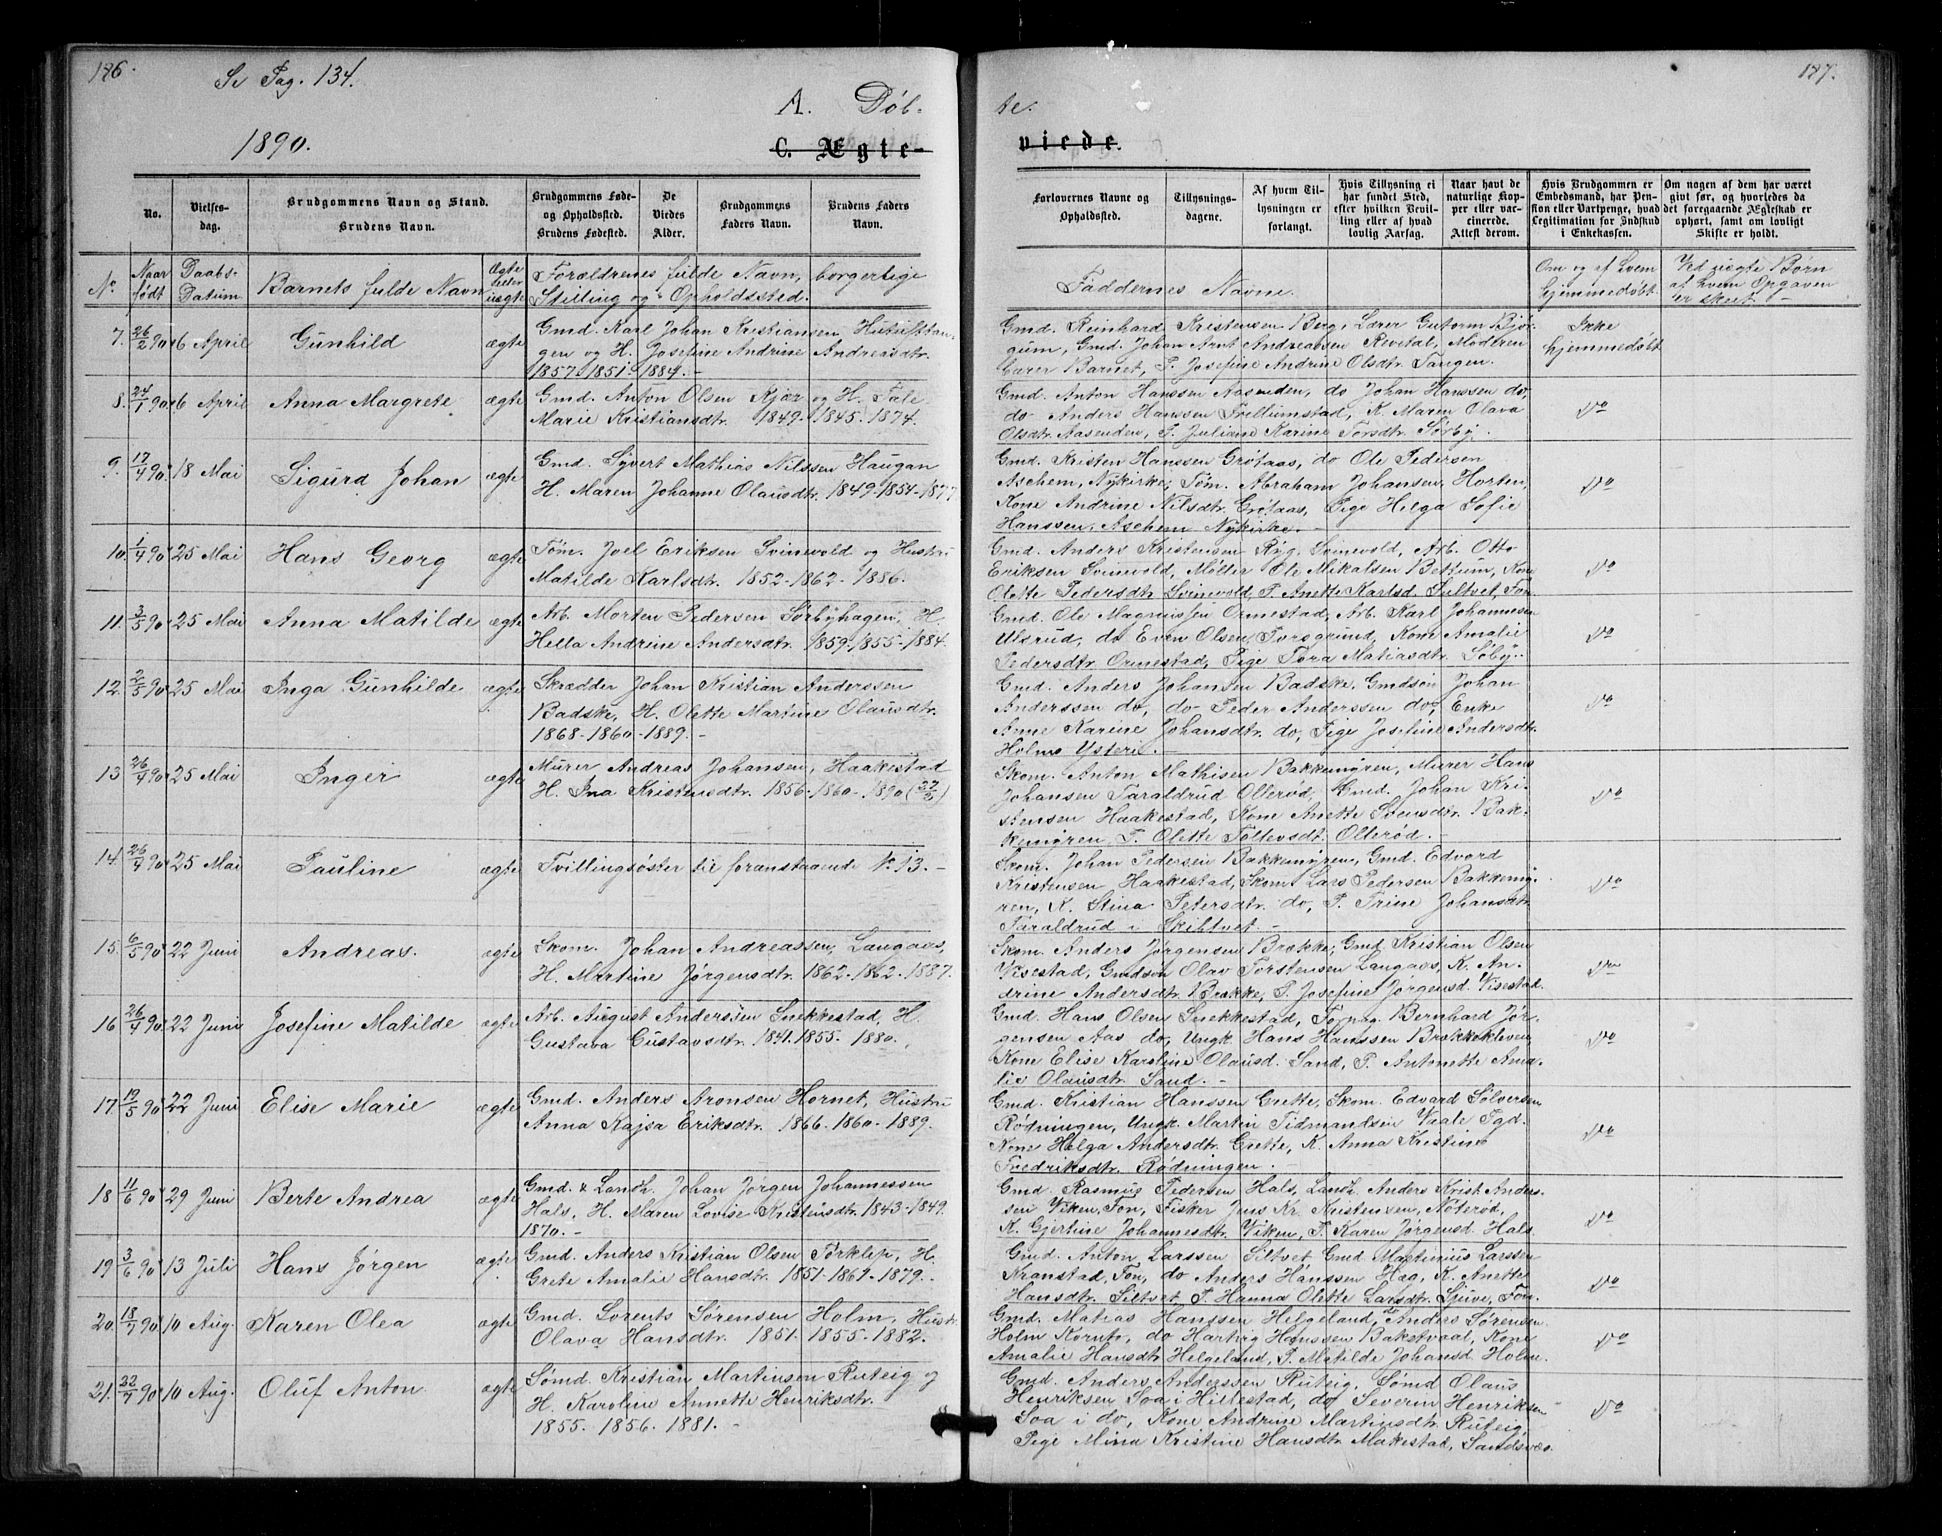 186.
Se Pag. 134.
A. Døb-
1890.
C. Ægte-
No.
Vielses-
dag.
Brudgommens Navn og Stand.
Brudens Navn.
Brudgommens Føde-
og Opholdssted.
Brudens Fødested.
De
Viedes
Alder.
Brudgommens
Faders Navn.
Brudens Faders
Navn.
No
Naar
født
Daabs-
Datum
Barnets fulde Navn
Ægte
eller
uægte
Forældrenes fulde Navn, borgerlige
Stilling og Opholdssted.
7. 26/2 90 6 April Gunhild ægte Gmd. Karl Johan Kristiansen
gen og H. Josefine Andrine Andreasdtr.
1857. 1851. 1884. -
8. 24/1 90 6 April Anna Margrete ægte Gmd. Anton Olsen Kjær og H. Tale
Marie Kristiansdtr. 1849. 1845. 1874.
9. 17/4 90 18 Mai Sigurd Johan ægte Gmd. Syvert Mathias Nilssen Haugan
H. Maren Johanne Olausdtr. 1849-1854-1877
10. 1/4 90 25 Mai Hans Georg ægte Tøm. Joel Eriksen Svinevold og Hustru
Matilde Karlsdtr. 1852-1862-1886.
11. 3/5 90 25 Mai Anna Matilde ægte Arb. Morten Pedersen Sørbyhagen, H.
Hella Andrine Andersdtr. 1859-1855-1884.
12. 2/5 90 25 Mai Inga Gunhilde ægte Skrædder Johan Kristian Anderssen
Badske, H. Olette Martine Olausdtr.
1868-1860-1889. -
13 26/4 90 25 Mai Inger ægte Murer Andreas Johansen, Haakestad
H. Ina Kristensdtr. 1856-1860-1890
14. 26/4 90 25 Mai Pauline ægte Tvillingsøster til foranstaaende No 13. -
15. 6/5 90 22 Juni Andreas. ægte Skom. Johan Andreassen, Langaas,
H. Martine Jørgensdtr. 1862-1862-1887.
16 26/4 90 22 Juni Josefine Matilde ægte Arb. August Anderssen Snekkestad, H.
Gustava Gustavsdtr. 1841. 1855. 1880.
17. 19/5 90 22 Juni Elise Marie ægte Gmd. Anders Aronsen Hornet, Hustru
Anna Kajsa Eriksdtr. 1866-1860-1889.
18 11/6 90 29 Juni Berte Andrea ægte Gmd. & Landh. Johan Jørgen Johannessen
Hals, H. Maren Lovise Kristensdtr. 1843-1849.
1870. -
19 3/6 90 13 Juli Hans Jørgen ægte Gmd. Anders Kristian Olsen Torklep, H.
Grete Amalie Hansdtr. 1851-1861-1879.
20. 18/7 90 10 Aug. Karen Olea ægte Gmd. Lorents Sørensen Holm, Hustr.
Olava Hansdtr. 1851. 1855. 1882.
21. 22/7 90 10 Aug. Oluf Anton ægte Sømd. Kristian Martinsen Ruteig og
H. Karoline Annette Henriksdtr.
1855. 1856. 1881. -
187.
te.
viede.
Forlovernes Navne og
Opholdssted.
Tillysnings-
dagene.
Af hvem Til-
lysningen er
forlangt.
Hvis Tillysning ei
har fundet Sted,
efter hvilken Bevil-
ling eller af hvad
lovlig Aarsag.
Naar havt de
naturlige Kop-
per eller vac-
cinerede.
Attest derom.
Hvis Brudgommen er
Embedsmand, har Pen-
sion eller Vartpenge, hvad
Legitimation for Indskud
i Enkekassen.
Om nogen af dem har været
givt før, og hvorledes da
det foregaaende Ægteskab er
ophørt, samt om lovligt
Skifte er holdt.
Faddernes Navne.
Om og af hvem
hjemmedøbt.
Ved uægte Børn
af hvem Opgaven
er skeet. -
Gmd. Reinhard Kristensen Berg, Lærer Gutorm Bjør-
gum, Gmd. Johan Arnt Andreassen Revetal, Modren
bærer Barnet, P. Josefine Andrine Olsdtr. Tangen.
Ikke
hjemmedøbt
Gmd. Anton Hanssen Aasenden, do Johan Hanssen do,
do Anders Hanssen Trollumstad, K. Maren Olava
Olsdtr. Aasenden, P. Juliane Karine Torsdtr. Sørby.
do
Gmd. Kristen Hanssen Grøtaas, do Ole Pedersen
Aschem, Nykirke, Tøm. Abraham Johansen, Horten,
Kone Andrine Nilsdtr. Grøtaas, Pige Helga Sofie
Hanssen, Aschem Nykirke. -
do
Gmd. Anders Kristensen Ryg, Svinevold, Arb. Otto
Eriksen Svinevold, Møller Ole Mikalsen Bettum, Kone
Olette Pedersdtr. Svinevold, P. Anette Karlsd.
do
Gmd. Ole Magnussen Ormestad, Arb. Karl Johannesen
Ulsrud, do Even Olsen, Forsgrund, Kone Amalie
Pedersdtr. Ormestad, Pige Tora Matiasdtr. Søby.
do
Gmd. Anders Johansen Badske, Gmdsøn Johan
Anderssen do, do Peder Anderssen do, Enke
Anne Karine Johansdtr. do, Pige Josefine Andersdtr.
Holms
do
Skom. Anton Mathisen Bakkemyren, Murer Hans
Johansen Taraldrud Ollerød, Gmd. Johan Kri-
stensen Haakestad, Kone Anette Svensdtr. Bak-
kemyren, P. Olette Tollevsdt. Ollerød. -
do
Skom. Johan Pedersen Bakkemyren, Gmd. Edvard
Kristensen Haakestad, Skom. Lars Pedersen Bakkemy-
ren, K. Stina Petersdtr. do, P. Trine Johansdtr.
Taraldrud i Skiltvet. -
do
Skom. Anders Jørgensen Brække, Gmd. Kristian Olsen
Visestad, Gmdsøn Olav Torstensen Langaas, K. An-
drine Andersdtr. Brække, P. Josefine Jørgensd. Visestad.
do
Gmd. Hans Olsen Snekkestad, Forpag. Bernhard Jør-
gensen Aas do, Ungk. Hans Hanssen Brækkekleven
Kone Elise Karoline Olausd. Sand, P. Antonette Ama-
lie Olausdtr. Sand. -
do
Gmd. Kristian Hanssen Grette, Skom. Edvard Sølversen
Rødningen, Ungk. Martin Tidmandsen Vaale Pgd.
Kone Helga Andersdtr. Grette, K. Anna Kristine
Fredriksdtr. Rødningen. -
do
Gmd. Rasmus Pedersen Hals, Landh. Anders Krist. Anders-
sen Viken, Fon, Fisker Jens Kr. Kristensen, Nøterød,
K. Gjertine Johannesdtr. Viken, P. Karen Jørgensd. Hals
do
Gmd. Anton Larssen Siltvet Gmd. Martinius Larssen
Kranstad, Fon, do Anders Hanssen Hæg, K. Anette
Hansdtr. Siltvet P. Hanna Olette Larsdtr. Sjuve, Fon.
do
Gmd. Matias Hanssen Helgeland, do Anders Sørensen
Holm do Hartvig Hanssen Bakstvaal, Kone
Amalie Hansdtr. Helgeland, P. Matilde Johansd. Holm.
do
Gmd. Anders Anderssen Ruteig, Sømd Olaus
Henriksen Soa i Hillestad, do Severin Henriksen
Soa i do, Kone Andrine Martinsdtr. Ruteig,
Pige Mina Kristine Hansdtr. Makestad,
do